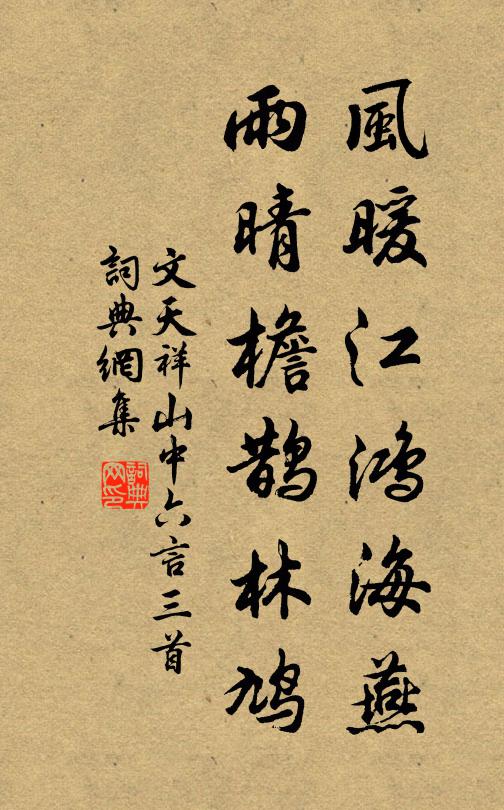 風暖江鴻海燕
雨晴檐鵲林鳩
文天祥山中六言三首
詞典網集
詞典网印